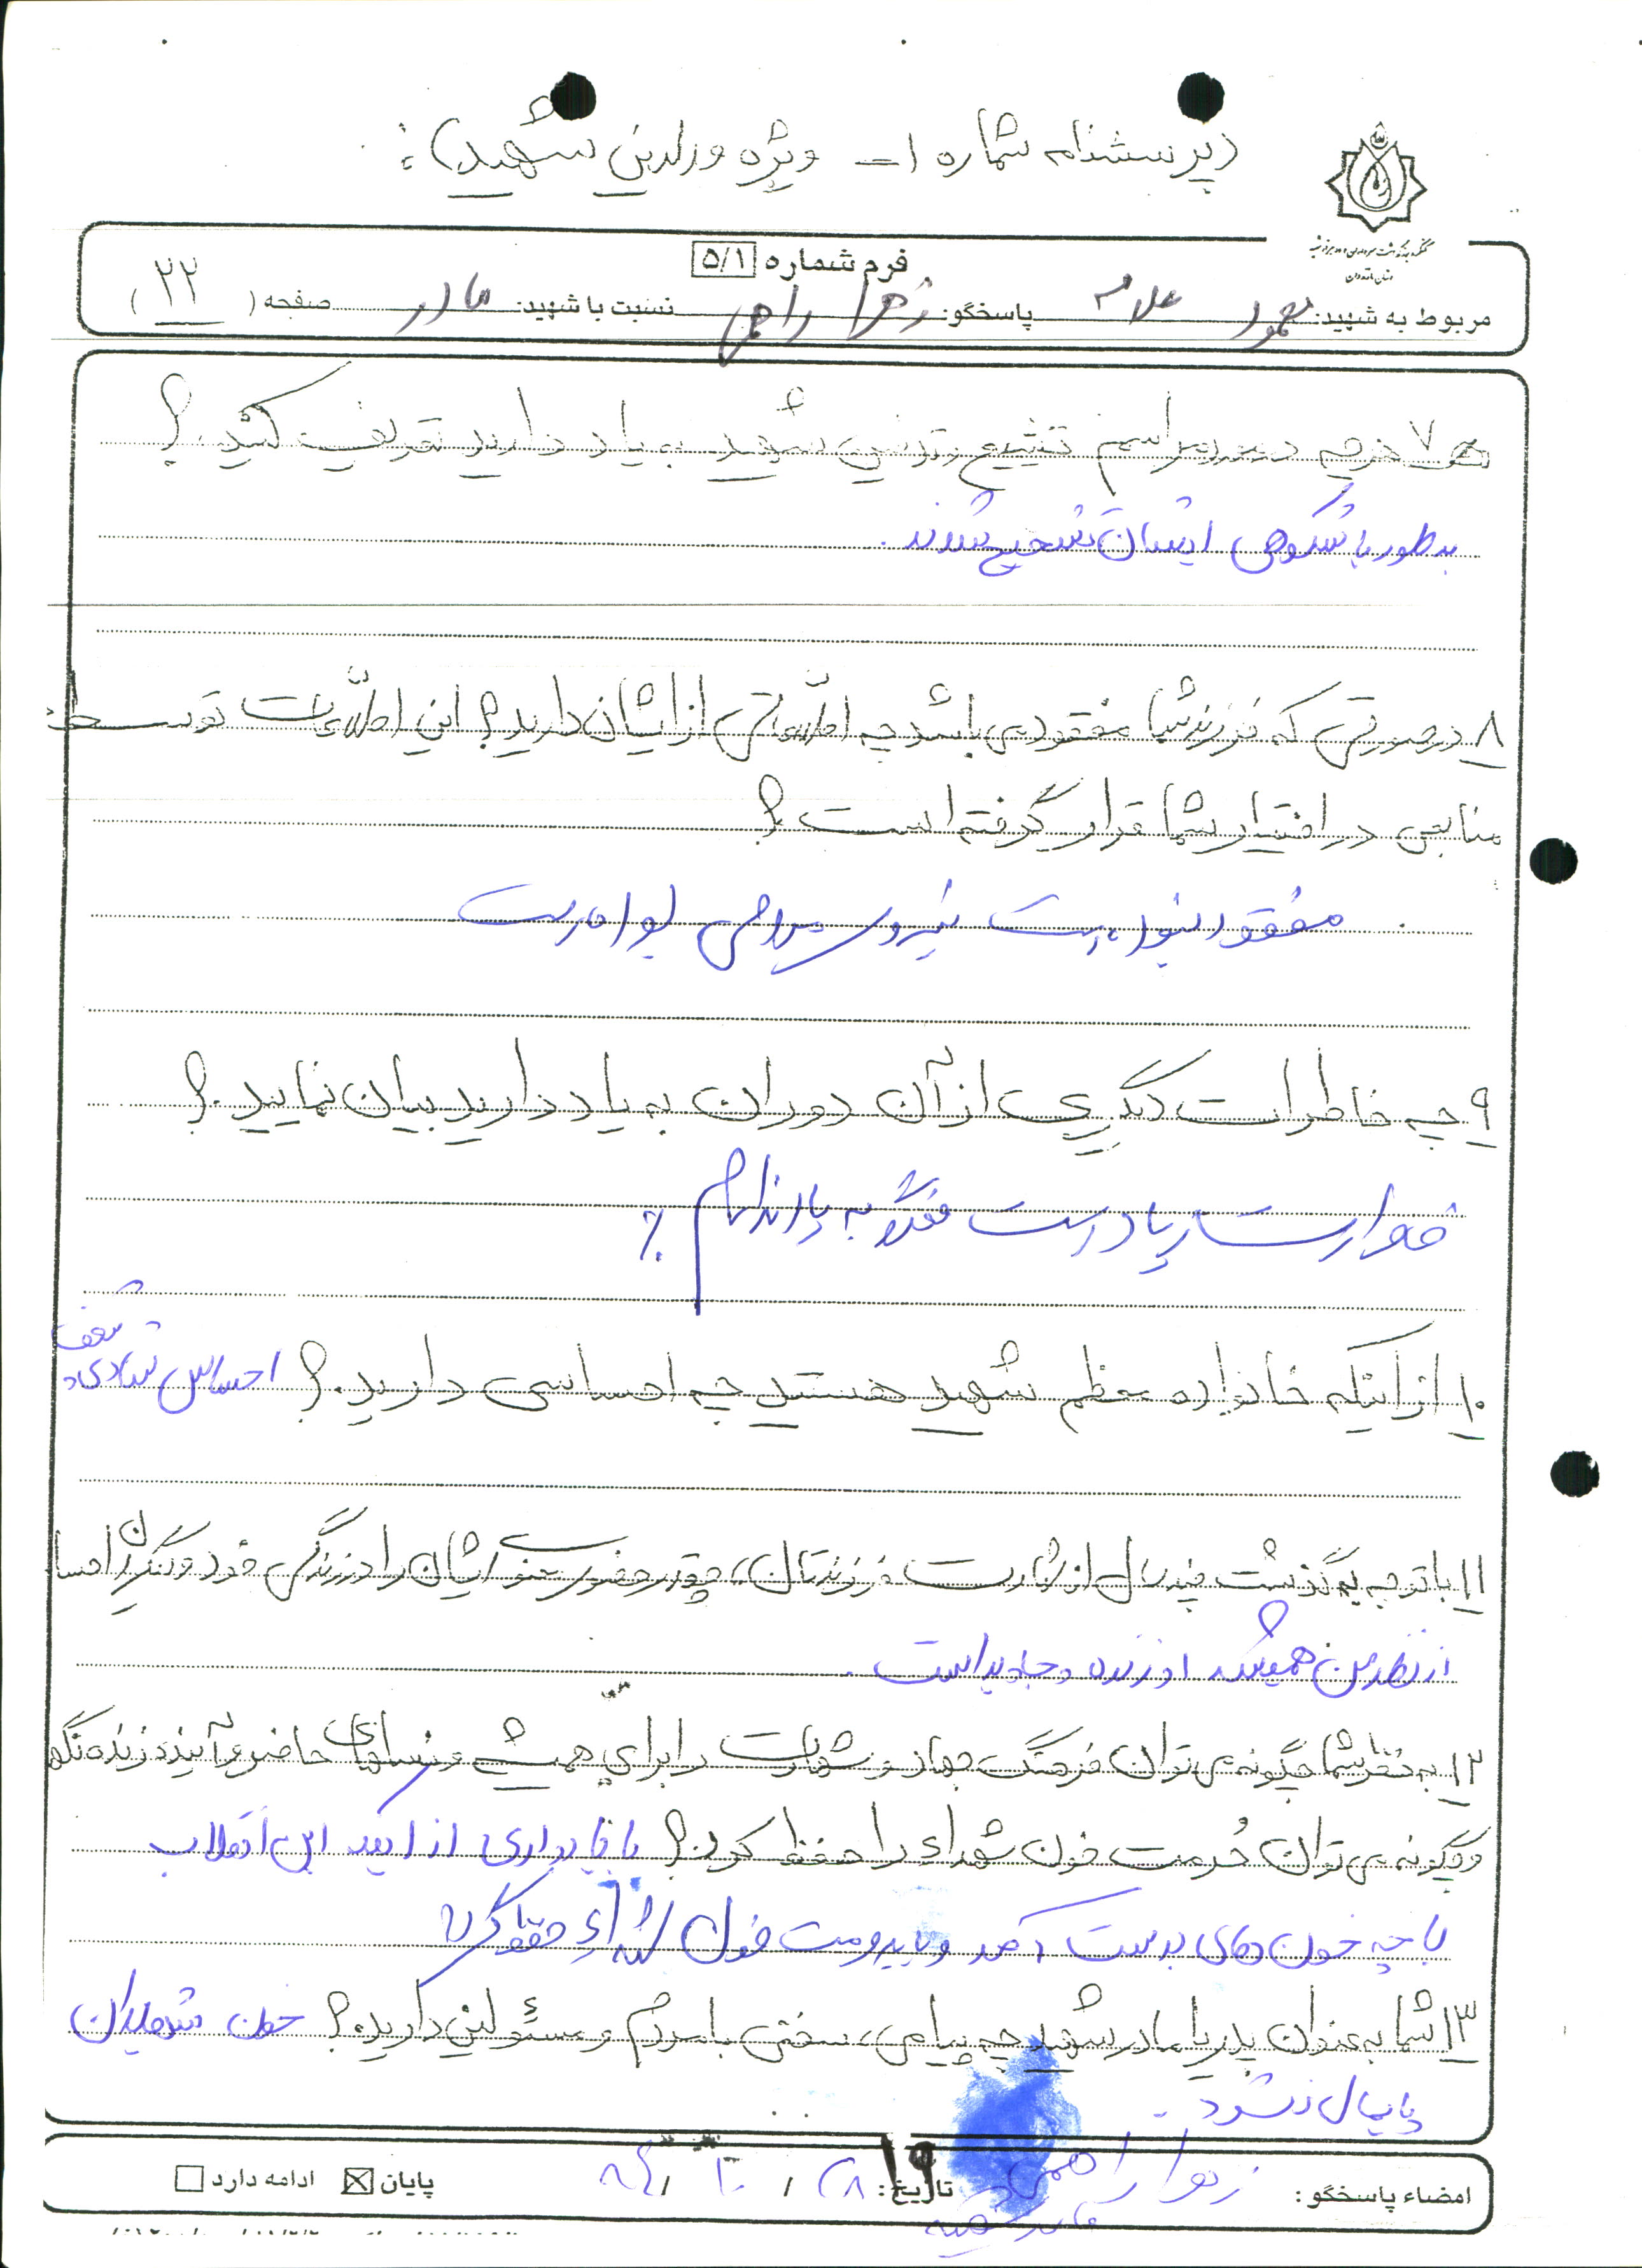 (پرسشنامه شماره ۱- ویژه والدین شهید):
فرم شماره ۵/۱
مربوط به شهید: محمود علامه پاسخگو: زهرا راحمی نسبت با شهید: مادر صفحه (۲۲)
۷ هرچه در مراسم تشییع و تدفین شهید به یاد دارید تعریف کنید؟
به طور با شکوهی ایشان تشییح شدند.
۸ در صورتی که فرزند شما مفقود می باشد چه اطلاعاتی از ایشان دارید؟ این اطلاعات توسط چه
منابعی در اختیار شما قرار گرفته است؟
مفقود نبوده است نیروی
۹ چه خاطرات دیگری از آن دوران به یاد دارید بیان نمایید؟
زیاد است به یاد ندارم
۱۰ از اینکه خانواده معظم شهید هستید چه احساسی دارید؟ احساس شادی و
شعف
۱۱ با توجه به گذشت چند سال از شهادت فرزندتان، چقدر حضور معنوی ایشان را در زندگی خود و دیگران احسا
از نظر من همیشه او زنده و جاوید است.
۱۲ به نظر شما چگونه می توان فرهنگ جهاد و شهادت را برای همیشه و نسلهای حاضر و آینده زنده نگه
و چگونه می توان حُرمت خون شهداء را حفظ کرد؟ با پایداری از اینکه این انقلاب
با چه خون های بدست آمد و باید حرمت خون شهداء حفظ کرد
۱۳ شما به عنوان پدر یا مادر شهید چه پیامی، سخنی با مردم و مسئولین دارید؟ خون شهیدان
پایمال نشود.
امضاء پاسخگو: زهرا راحمی تاریخ: ۲۸ / ۱۰ / پایان ادامه دارد
مادر شهید
۱۹